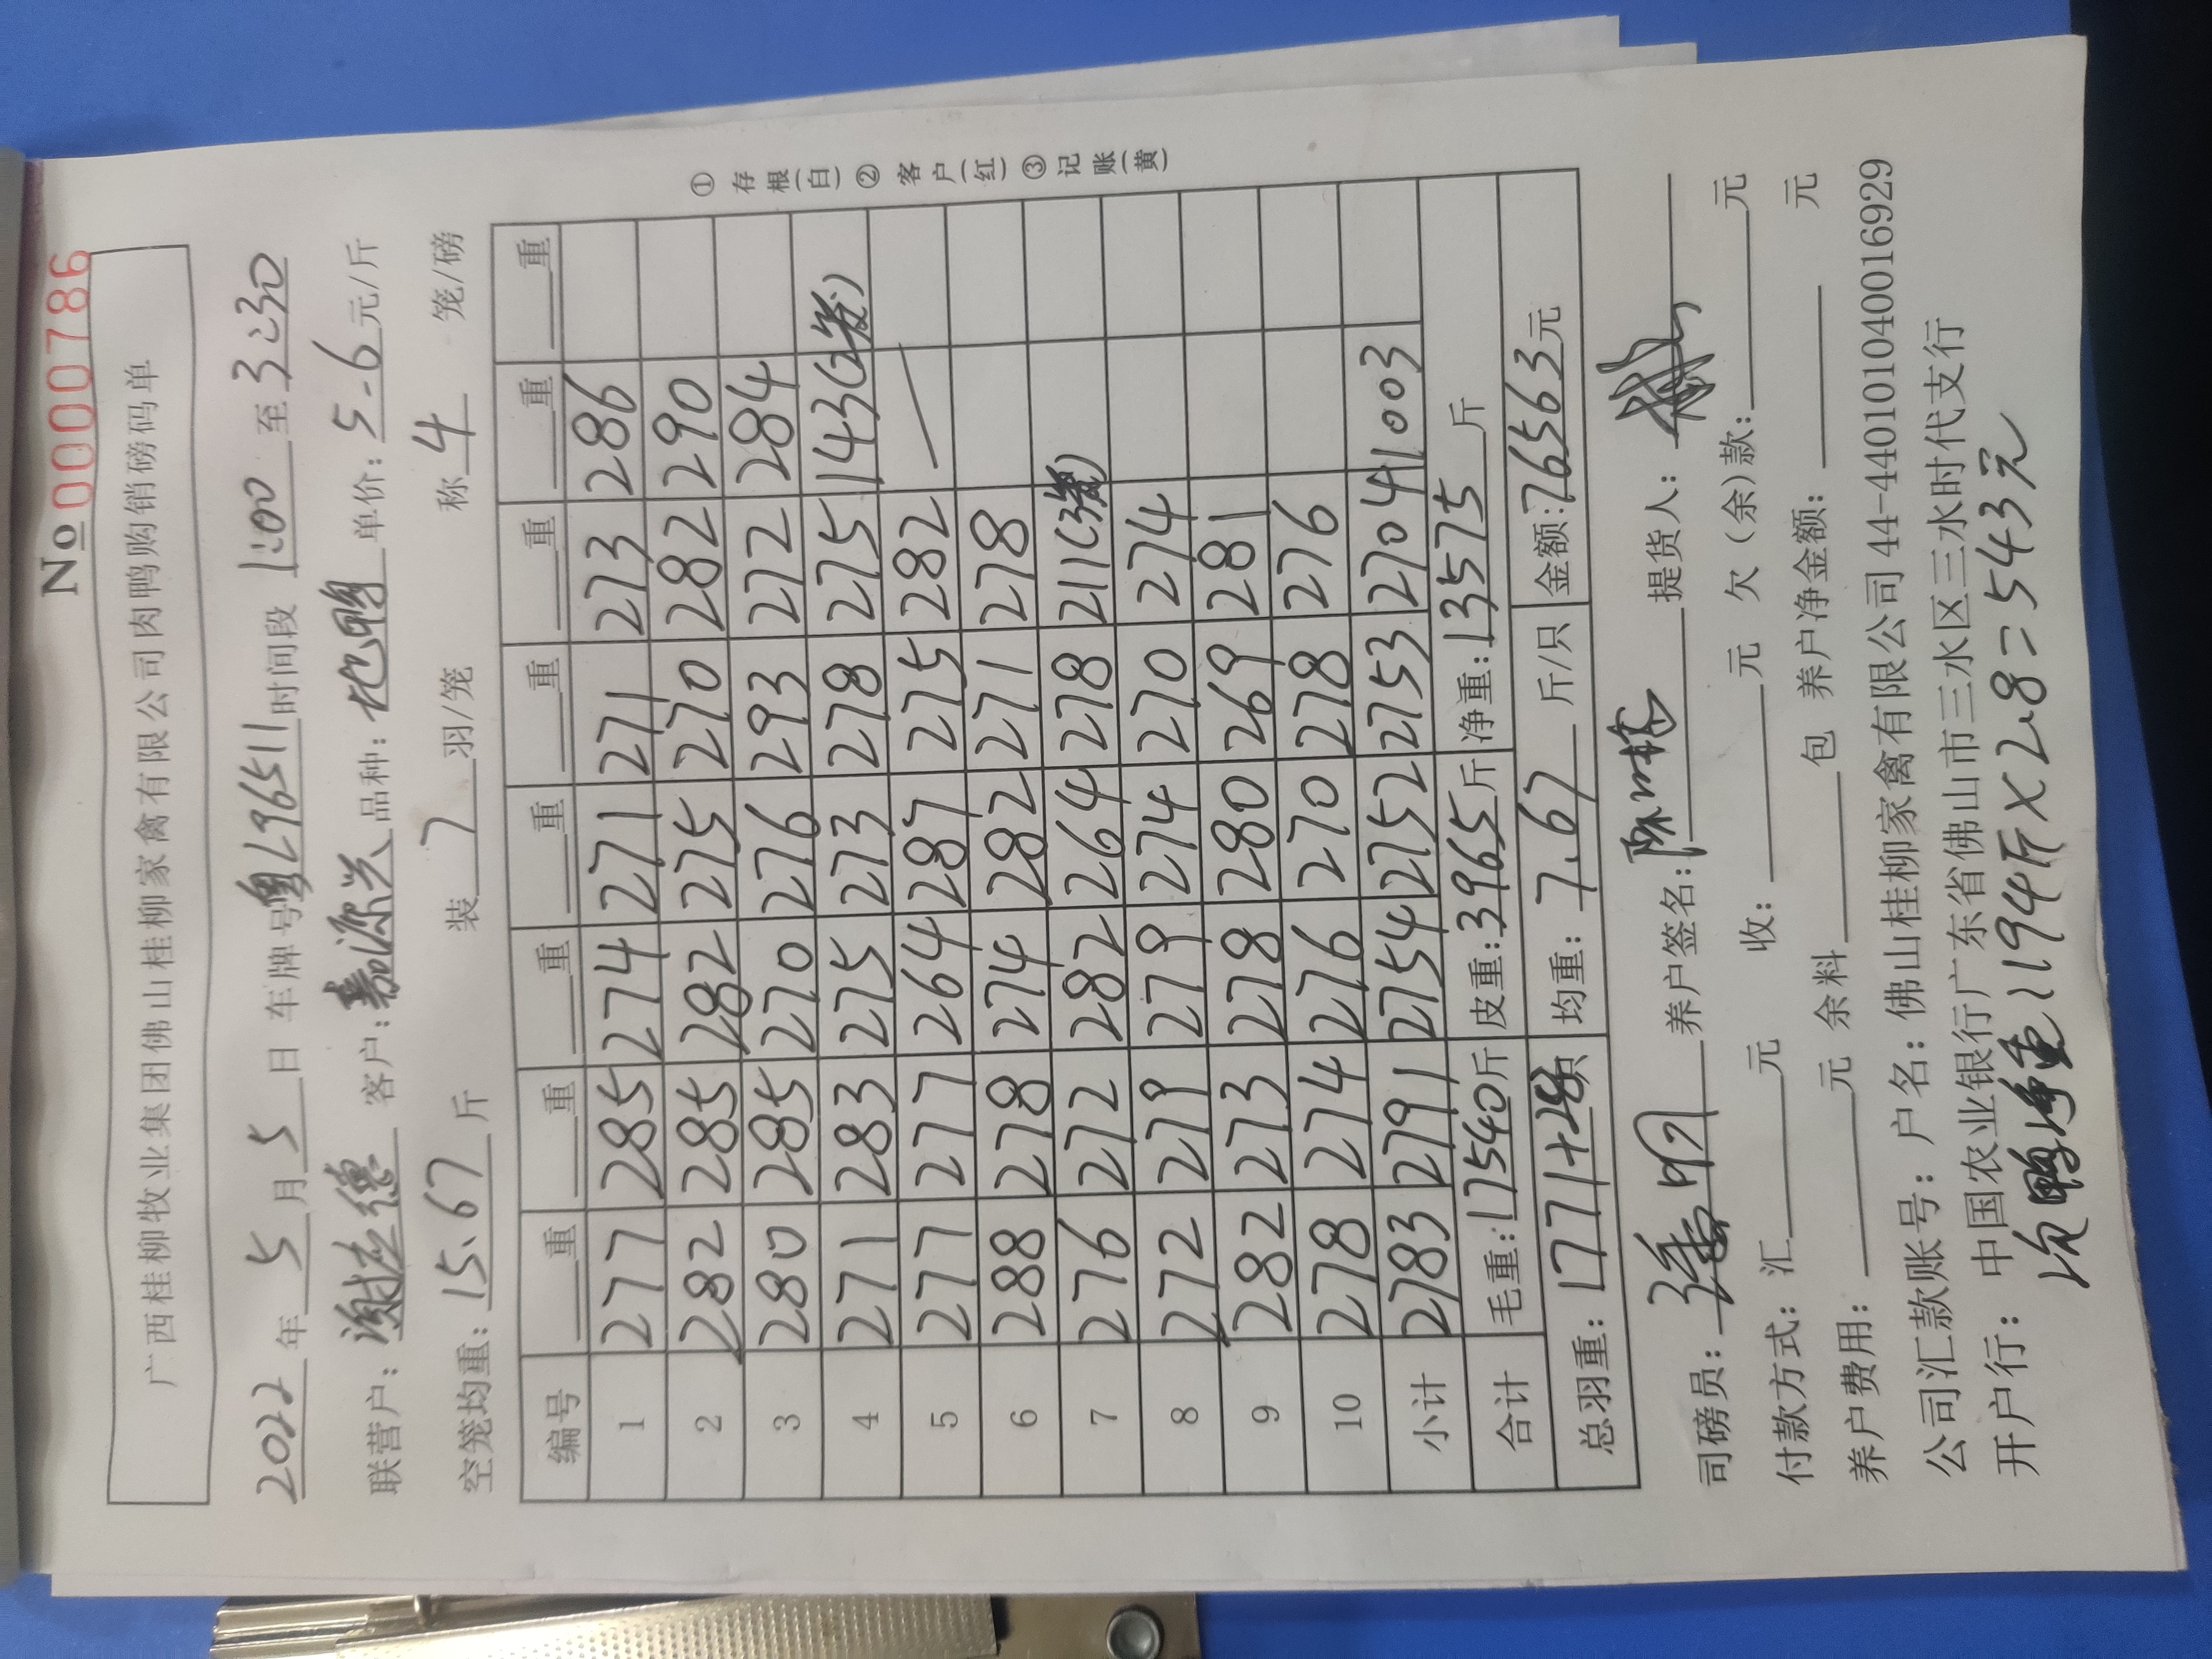 No 0000786
广西桂柳牧业集团佛山桂柳家禽有限公司肉鸭购销磅码单
2022年5月5日 车牌号粤L96511时间段1:00至3:30
联营户: 客户:嘉源兴 品种: 单价:5.6元/斤
空笼均重:15.67斤 装7羽/笼 称4笼/磅
编号 重 重 重 重 重 重 重 重
1 277 285 274 271 271 273 286
2 282 285 282 275 270 282 290
3 280 285 270 276 293 272 284
4 271 283 275 273 278 275 143(2笼)
5 277 277 264 287 275 282
6 288 278 274 282 271 278
7 276 272 282 264 278 211(3笼)
8 272 279 279 274 270 274
9 282 273 278 280 269 281
10 278 274 276 270 278 276
小计 2783 2791 2754 2752 2753 2704 1003
合计 毛重:17540斤 皮重:3965斤 净重:13575斤
总羽重:1771+28只 均重:7.67斤/只 金额:76563元
① 存根(白) ② 客户(红) ③ 记账(黄)
司磅员: 养户签名: 提货人:
付款方式:汇 元 收: 元 欠(余)款: 元
养户费用: 元 余料 包 养户净金额: 元
公司汇款账号:户名:佛山桂柳家禽有限公司44-440101040016929
开户行:中国农业银行广东省佛山市三水区三水时代支行
次鸭净重:194斤×2.8=543元